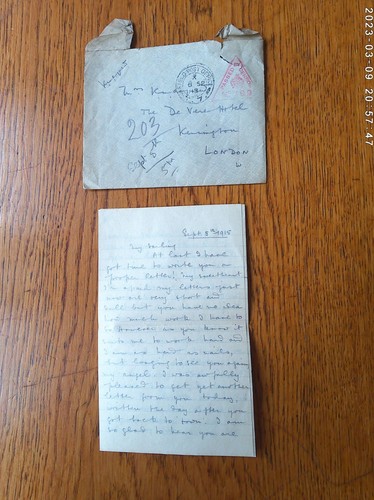 2023-03-09 20:57:47
Mrs
The De Vere Hotel
203
Kensington
LONDON
Sept 8th 1915
My darling
At last I have
got time to write you a
proper letter, my sweetheart.
I'm afraid my letters just
now are very short and
dull but you have no idea
how much work I have to
do. However as you know it
suits me to work hard and
I am as hard as nails,
but longing to see you again
my angel. I was awfully
pleased to get yet another
letter from you today,
written the day after you
got back to town. I am
so glad to hear you are